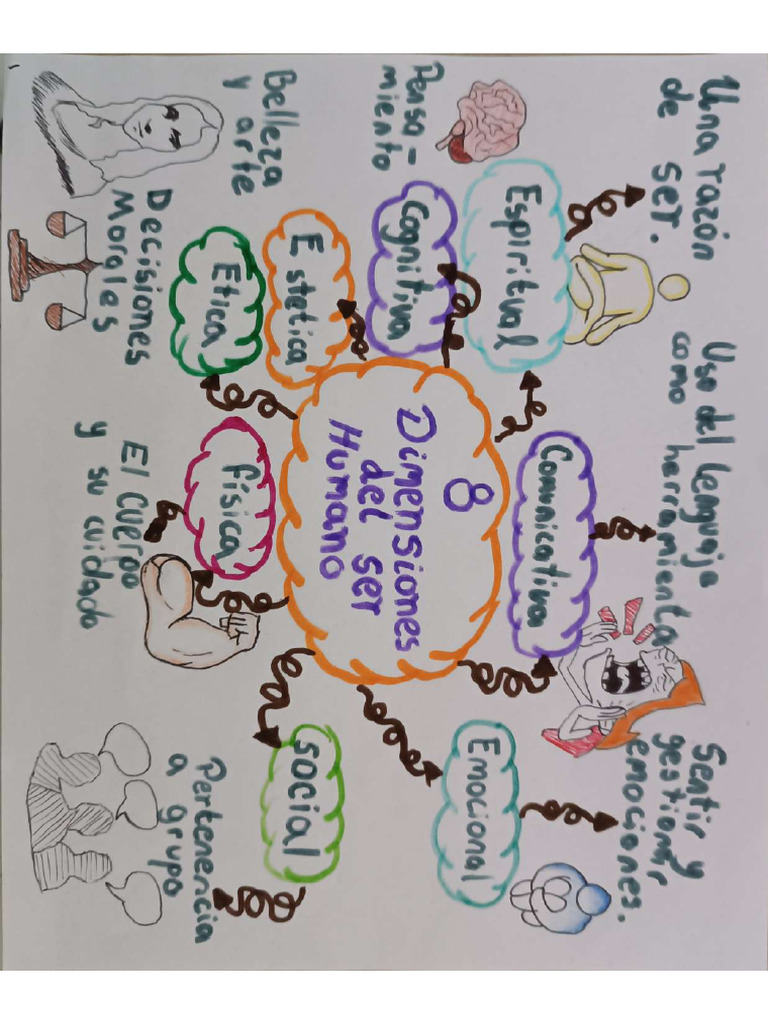 8
Dimensiones
del ser
Humano
Espiritual
Una razón
de ser.
Comunicativa
Uso del lenguaje
como herramienta
Emocional
Sentir y
gestionar
emociones.
Cognitiva
Pensa-
miento
Estética
Belleza
y arte
Etica
Decisiones
Morales
física
El cuerpo
y su cuidado
social
Pertenencia
a grupo